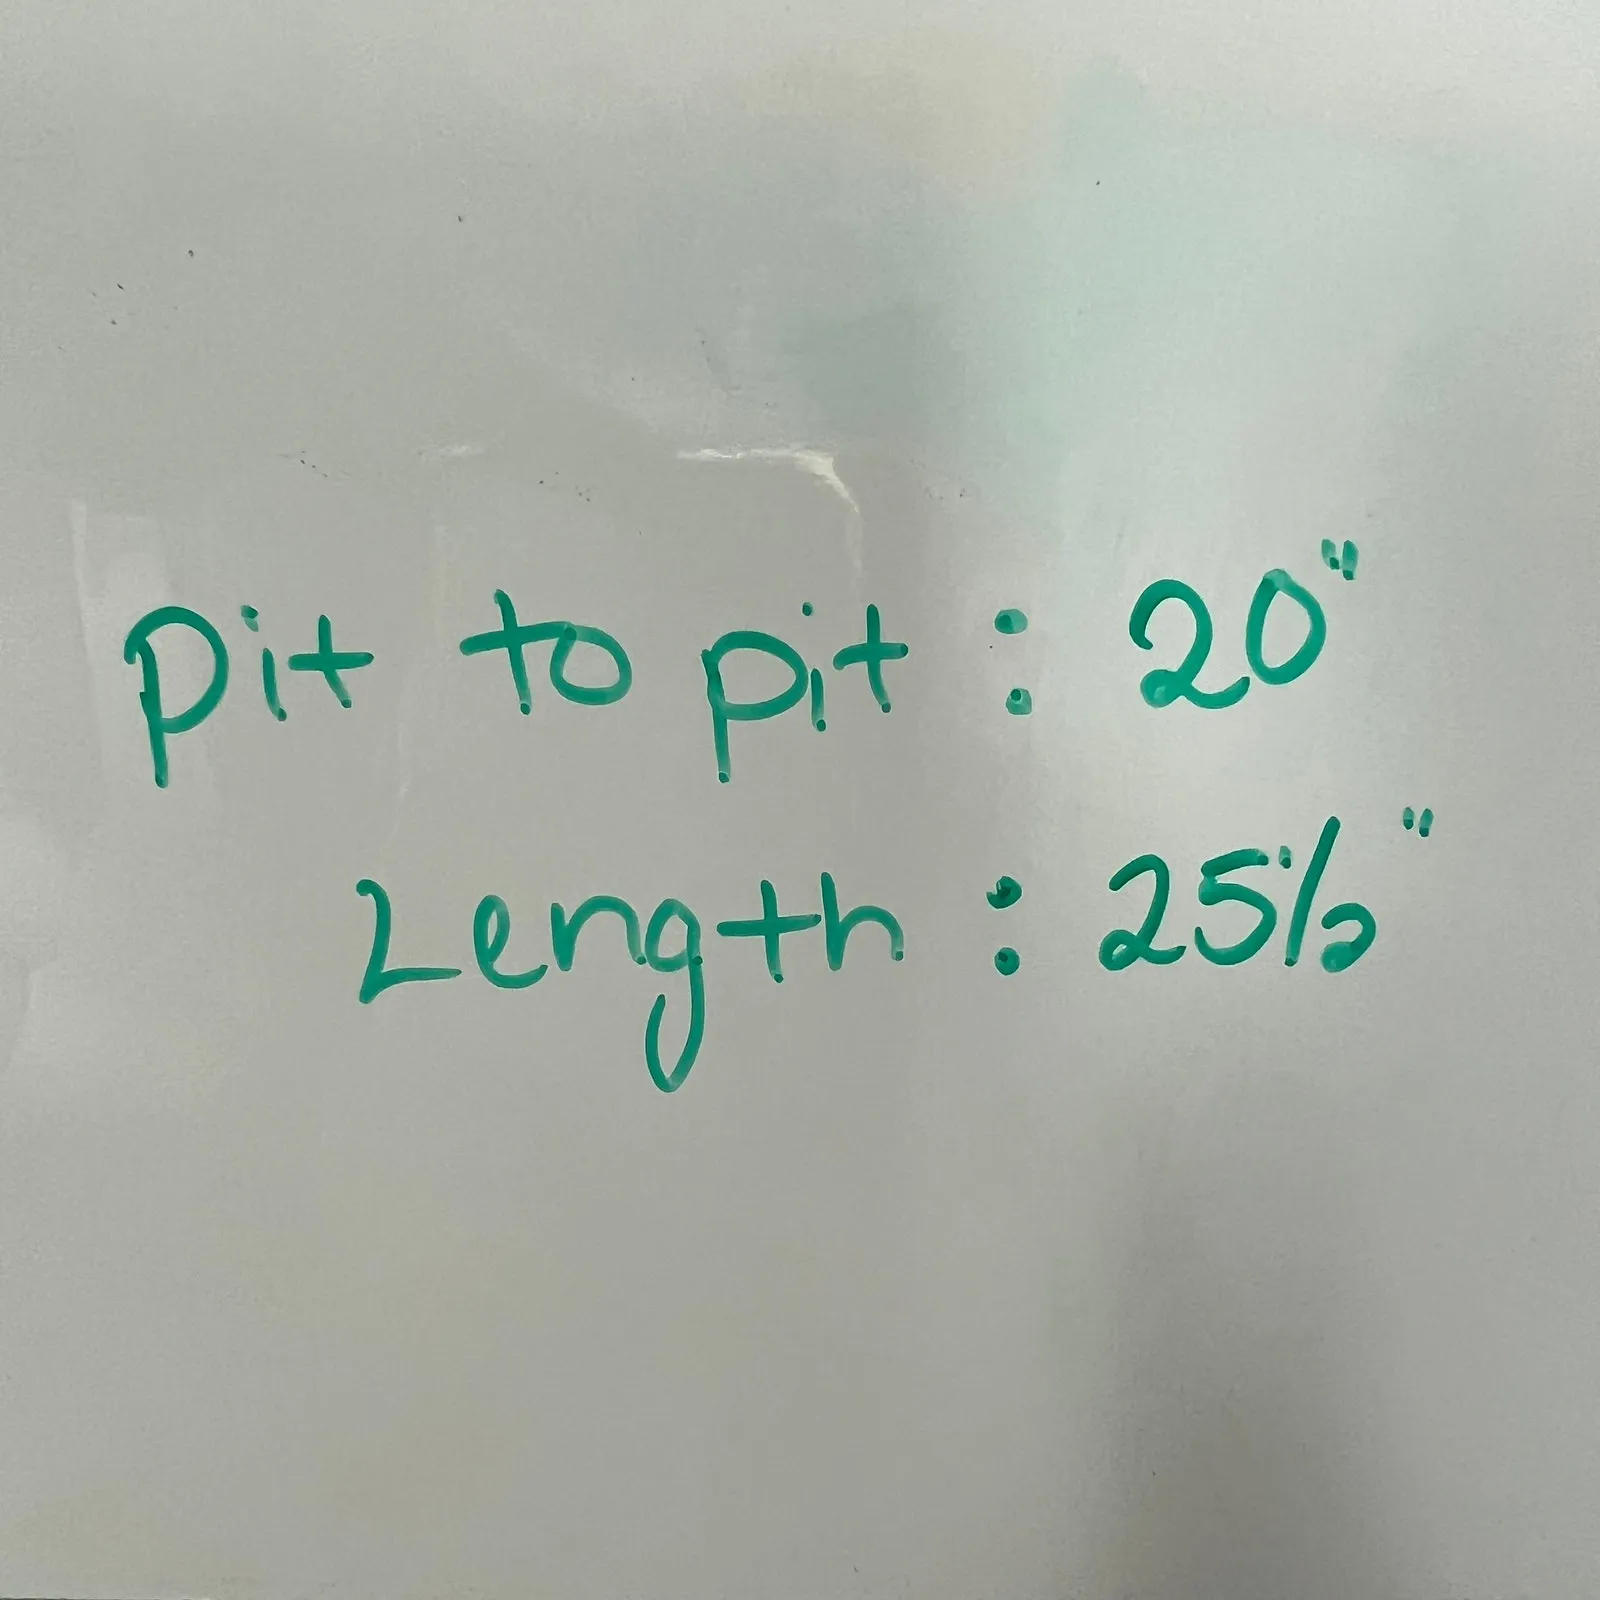 pit to pit : 20"
Length : 25 1/2"